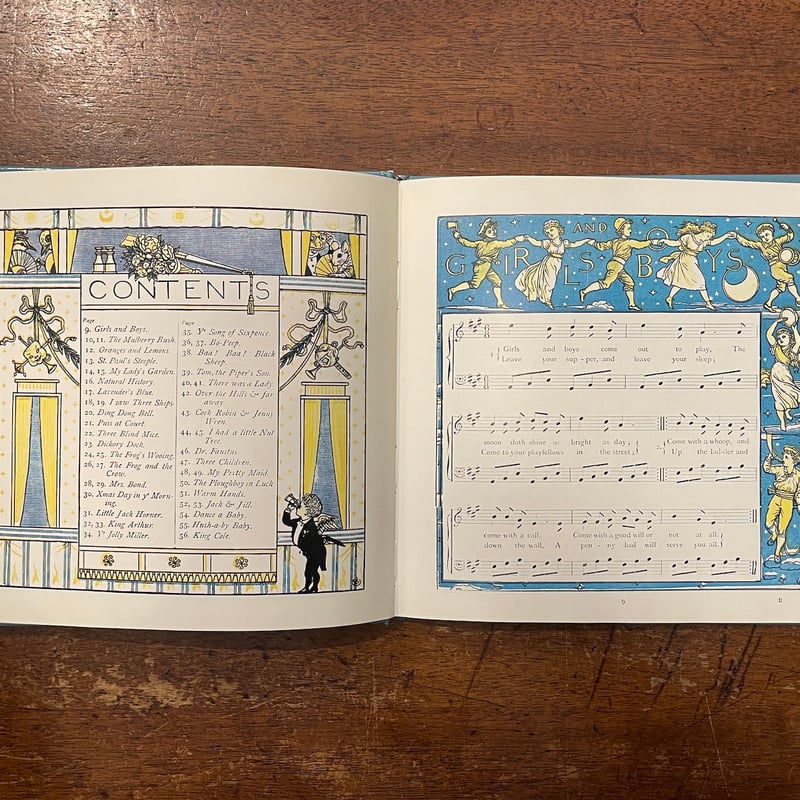 CONTENTS
Page
9. Girls and Boys.
10, 11. The Mulberry Bush.
12. Oranges and Lemons.
13. St. Paul's Steeple.
14, 15. My Lady's Garden.
16. Natural History.
17. Lavender's Blue.
18, 19. I saw Three Ships.
20. Ding Dong Bell.
21. Puss at Court.
22. Three Blind Mice.
23. Dickory Dock.
24, 25. The Frog's Wooing.
26, 27. The Frog and the
Crow.
28, 29. Mrs. Bond.
30. Xmas Day in yᵉ Morn-
ing.
31. Little Jack Horner.
32, 33. King Arthur.
34. Yᵉ Jolly Miller.
Page
35. Yᵉ Song of Sixpence.
36, 37. Bo-Peep.
38. Baa! Baa! Black
Sheep.
39. Tom, the Piper's Son.
40, 41. There was a Lady
42. Over the Hills & far
away.
43. Cock Robin & Jenny
Wren.
44, 45. I had a little Nut
Tree.
46. Dr. Faustus.
47. Three Children.
48, 49. My Pretty Maid.
50. The Ploughboy in Luck
51. Warm Hands.
52, 53. Jack & Jill.
54. Dance a Baby.
55. Hush-a-by Baby.
56. King Cole.
GIRLS AND BOYS
1 Girls and boys come out to play, The
Leave your sup-per, and leave your sleep;
moon doth shine as bright as day;
Come with a whoop, and
Come to your playfellows in the street;
Up the lad-der and
come with a call, Come with a good will or not at all.
down the wall, A pen-ny loaf will serve you all.
9
B